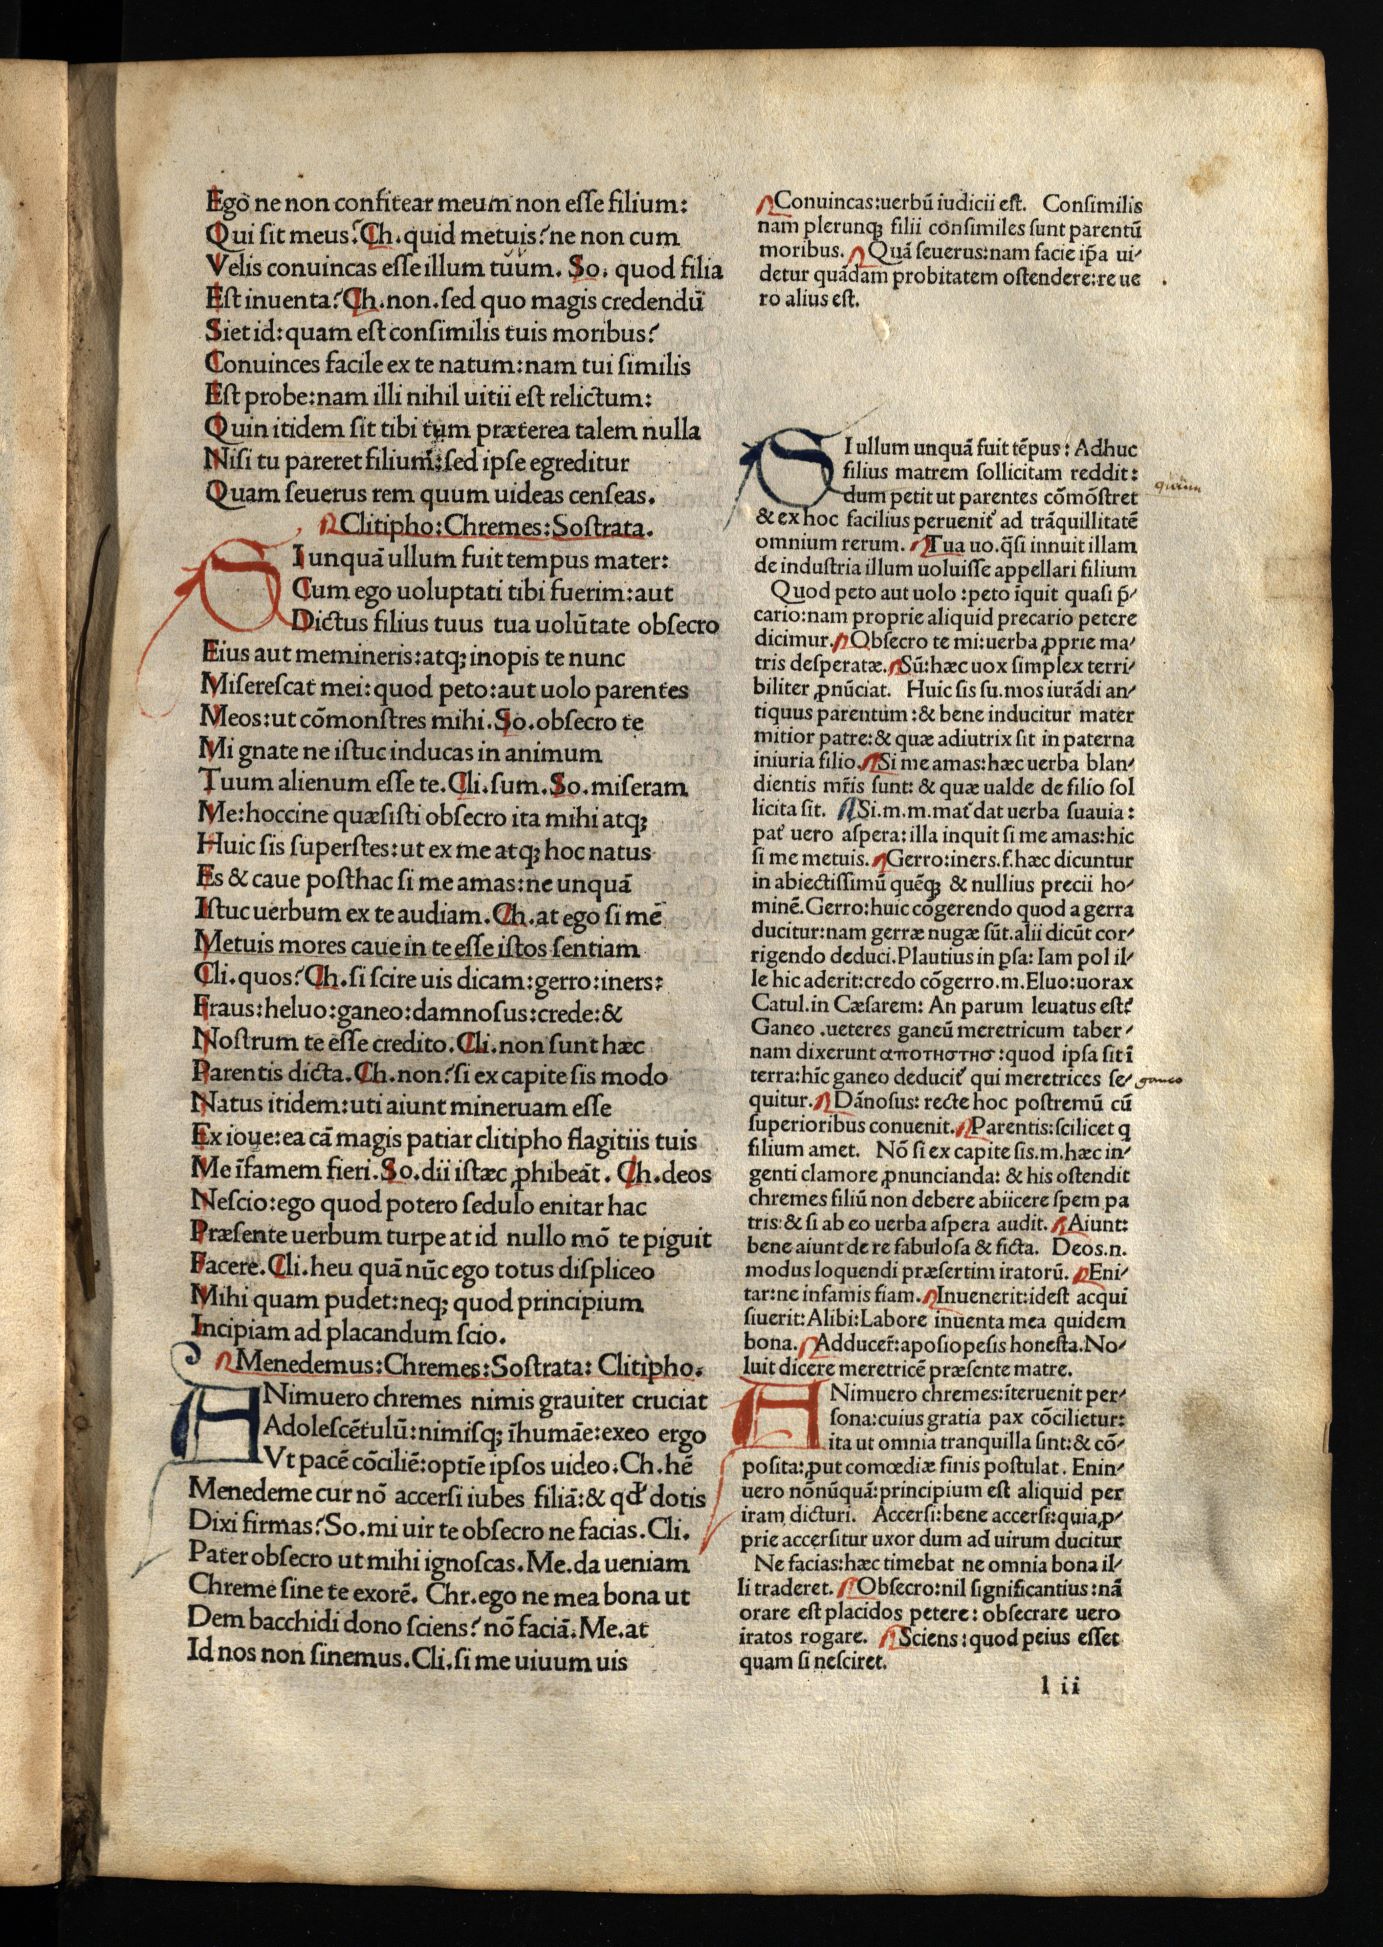 Ego ne non confitear meum non esse filium:
Qui sit meus? Ch. quid metuis? ne non cum
Velis conuincas esse illum tuum. So. quod filia
Est inuenta? Ch. non. sed quo magis credendū
Siet id: quam est consimilis tuis moribus?
Conuinces facile ex te natum: nam tui similis
Est probe: nam illi nihil uitii est relictum:
Quin itidem sit tibi tum præterea talem nulla
Nisi tu pareret filium: sed ipse egreditur
Quam seuerus rem quum uideas censeas.
Clitipho: Chremes: Sostrata.
SI unquā ullum fuit tempus mater:
Cum ego uoluptati tibi fuerim: aut
Dictus filius tuus tua uolūtate obsecro
Eius aut memineris: atq; inopis te nunc
Miserescat mei: quod peto: aut uolo parentes
Meos: ut cōmonstres mihi. So. obsecro te
Mi gnate ne istuc inducas in animum
Tuum alienum esse te. Cli. sum. So. miseram
Me: hoccine quæsisti obsecro ita mihi atq;
Huic sis superstes: ut ex me atq; hoc natus
Es & caue posthac si me amas: ne unquā
Istuc uerbum ex te audiam. Ch. at ego si mē
Metuis mores caue in te esse istos sentiam
Cli. quos? Ch. si scire uis dicam: gerro: iners:
Fraus: heluo: ganeo: damnosus: crede: &
Nostrum te esse credito. Cli. non sunt hæc
Parentis dicta. Ch. non? si ex capite sis modo
Natus itidem: uti aiunt mineruam esse
Ex ioue: ea cā magis patiar clitipho flagitiis tuis
Me īfamem fieri. So. dii istæc ꝓhibeāt. Ch. deos
Nescio: ego quod potero sedulo enitar hac
Præsente uerbum turpe at id nullo mō te piguit
Facere. Cli. heu quā nūc ego totus displiceo
Mihi quam pudet: neq; quod principium
Incipiam ad placandum scio.
Menedemus: Chremes: Sostrata: Clitipho.
ANimuero chremes nimis grauiter cruciat
Adolescētulū: nimisq; īhumāe: exeo ergo
Vt pacē cōciliē: optīe ipsos uideo. Ch. hē
Menedeme cur nō accersi iubes filiā: & qd̛ dotis
Dixi firmas? So. mi uir te obsecro ne facias. Cli.
Pater obsecro ut mihi ignoscas. Me. da ueniam
Chreme sine te exorē. Chr. ego ne mea bona ut
Dem bacchidi dono sciens? nō faciā. Me. at
Id nos non sinemus. Cli. si me uiuum uis
Conuincas: uerbū iudicii est. Consimilis
nam plerunq; filii consimiles sunt parentū
moribus. Quā seuerus: nam facie ip̄a ui-
detur quādam probitatem ostendere: re ue
ro alius est.
SI ullum unquā fuit tēpus: Adhuc
filius matrem sollicitam reddit:
dum petit ut parentes cōmōstret
& ex hoc facilius peruenit̛ ad trāquillitatē
omnium rerum. Tua uo. q̄si innuit illam
de industria illum uoluisse appellari filium
Quod peto aut uolo: peto īquit quasi p̄-
cario: nam proprie aliquid precario petere
dicimur. Obsecro te mi: uerba ꝓprie ma-
tris desperatæ. Sū: hæc uox simplex terri-
biliter ꝓnūciat. Huic sis su. mos iurādi an-
tiquus parentum: & bene inducitur mater
mitior patre: & quæ adiutrix sit in paterna
iniuria filio. Si me amas: hæc uerba blan-
dientis mr̄is sunt: & quæ ualde de filio sol
licita sit. Si. m. m. mat̛ dat uerba suauia:
pat̛ uero aspera: illa inquit si me amas: hic
si me metuis. Gerro: iners. f. hæc dicuntur
in abiectissimū quēq; & nullius precii ho-
minē. Gerro: huic cōgerendo quod a gerra
ducitur: nam gerræ nugæ sūt. alii dicūt cor-
rigendo deduci. Plautius in p̄sa: Iam pol il-
le hic aderit: credo cōgerro. m. Eluo: uorax
Catul. in Cæsarem: An parum leuatus est?
Ganeo. ueteres ganeū meretricum taber-
nam dixerunt αποτηστησ: quod ipsa sit ī
terra: hīc ganeo deducit̛ qui meretrices se-
quitur. Dānosus: recte hoc postremū cū
superioribus conuenit. Parentis: scilicet q
filium amet. Nō si ex capite sis. m. hæc in-
genti clamore ꝓnuncianda: & his ostendit
chremes filiū non debere abiicere spem pa
tris: & si ab eo uerba aspera audit. Aiunt:
bene aiunt de re fabulosa & ficta. Deos. n.
modus loquendi præsertim iratorū. Eni-
tar: ne infamis fiam. Inuenerit: idest acqui
siuerit: Alibi: Labore inuenta mea quidem
bona. Adducer̄: aposiopesis honesta. No-
luit dicere meretricē præsente matre.
ANimuero chremes: īteruenit per-
sona: cuius gratia pax cōcilietur:
ita ut omnia tranquilla sint: & cō-
posita: ꝓut comœdiæ finis postulat. Enin-
uero nōnūquā: principium est aliquid per
iram dicturi. Accersi: bene accersi: quia ꝓ-
prie accersitur uxor dum ad uirum ducitur
Ne facias: hæc timebat ne omnia bona il-
li traderet. Obsecro: nil significantius: nā
orare est placidos petere: obsecrare uero
iratos rogare. Sciens: quod peius esset
quam si nesciret.
l ii
ganeo